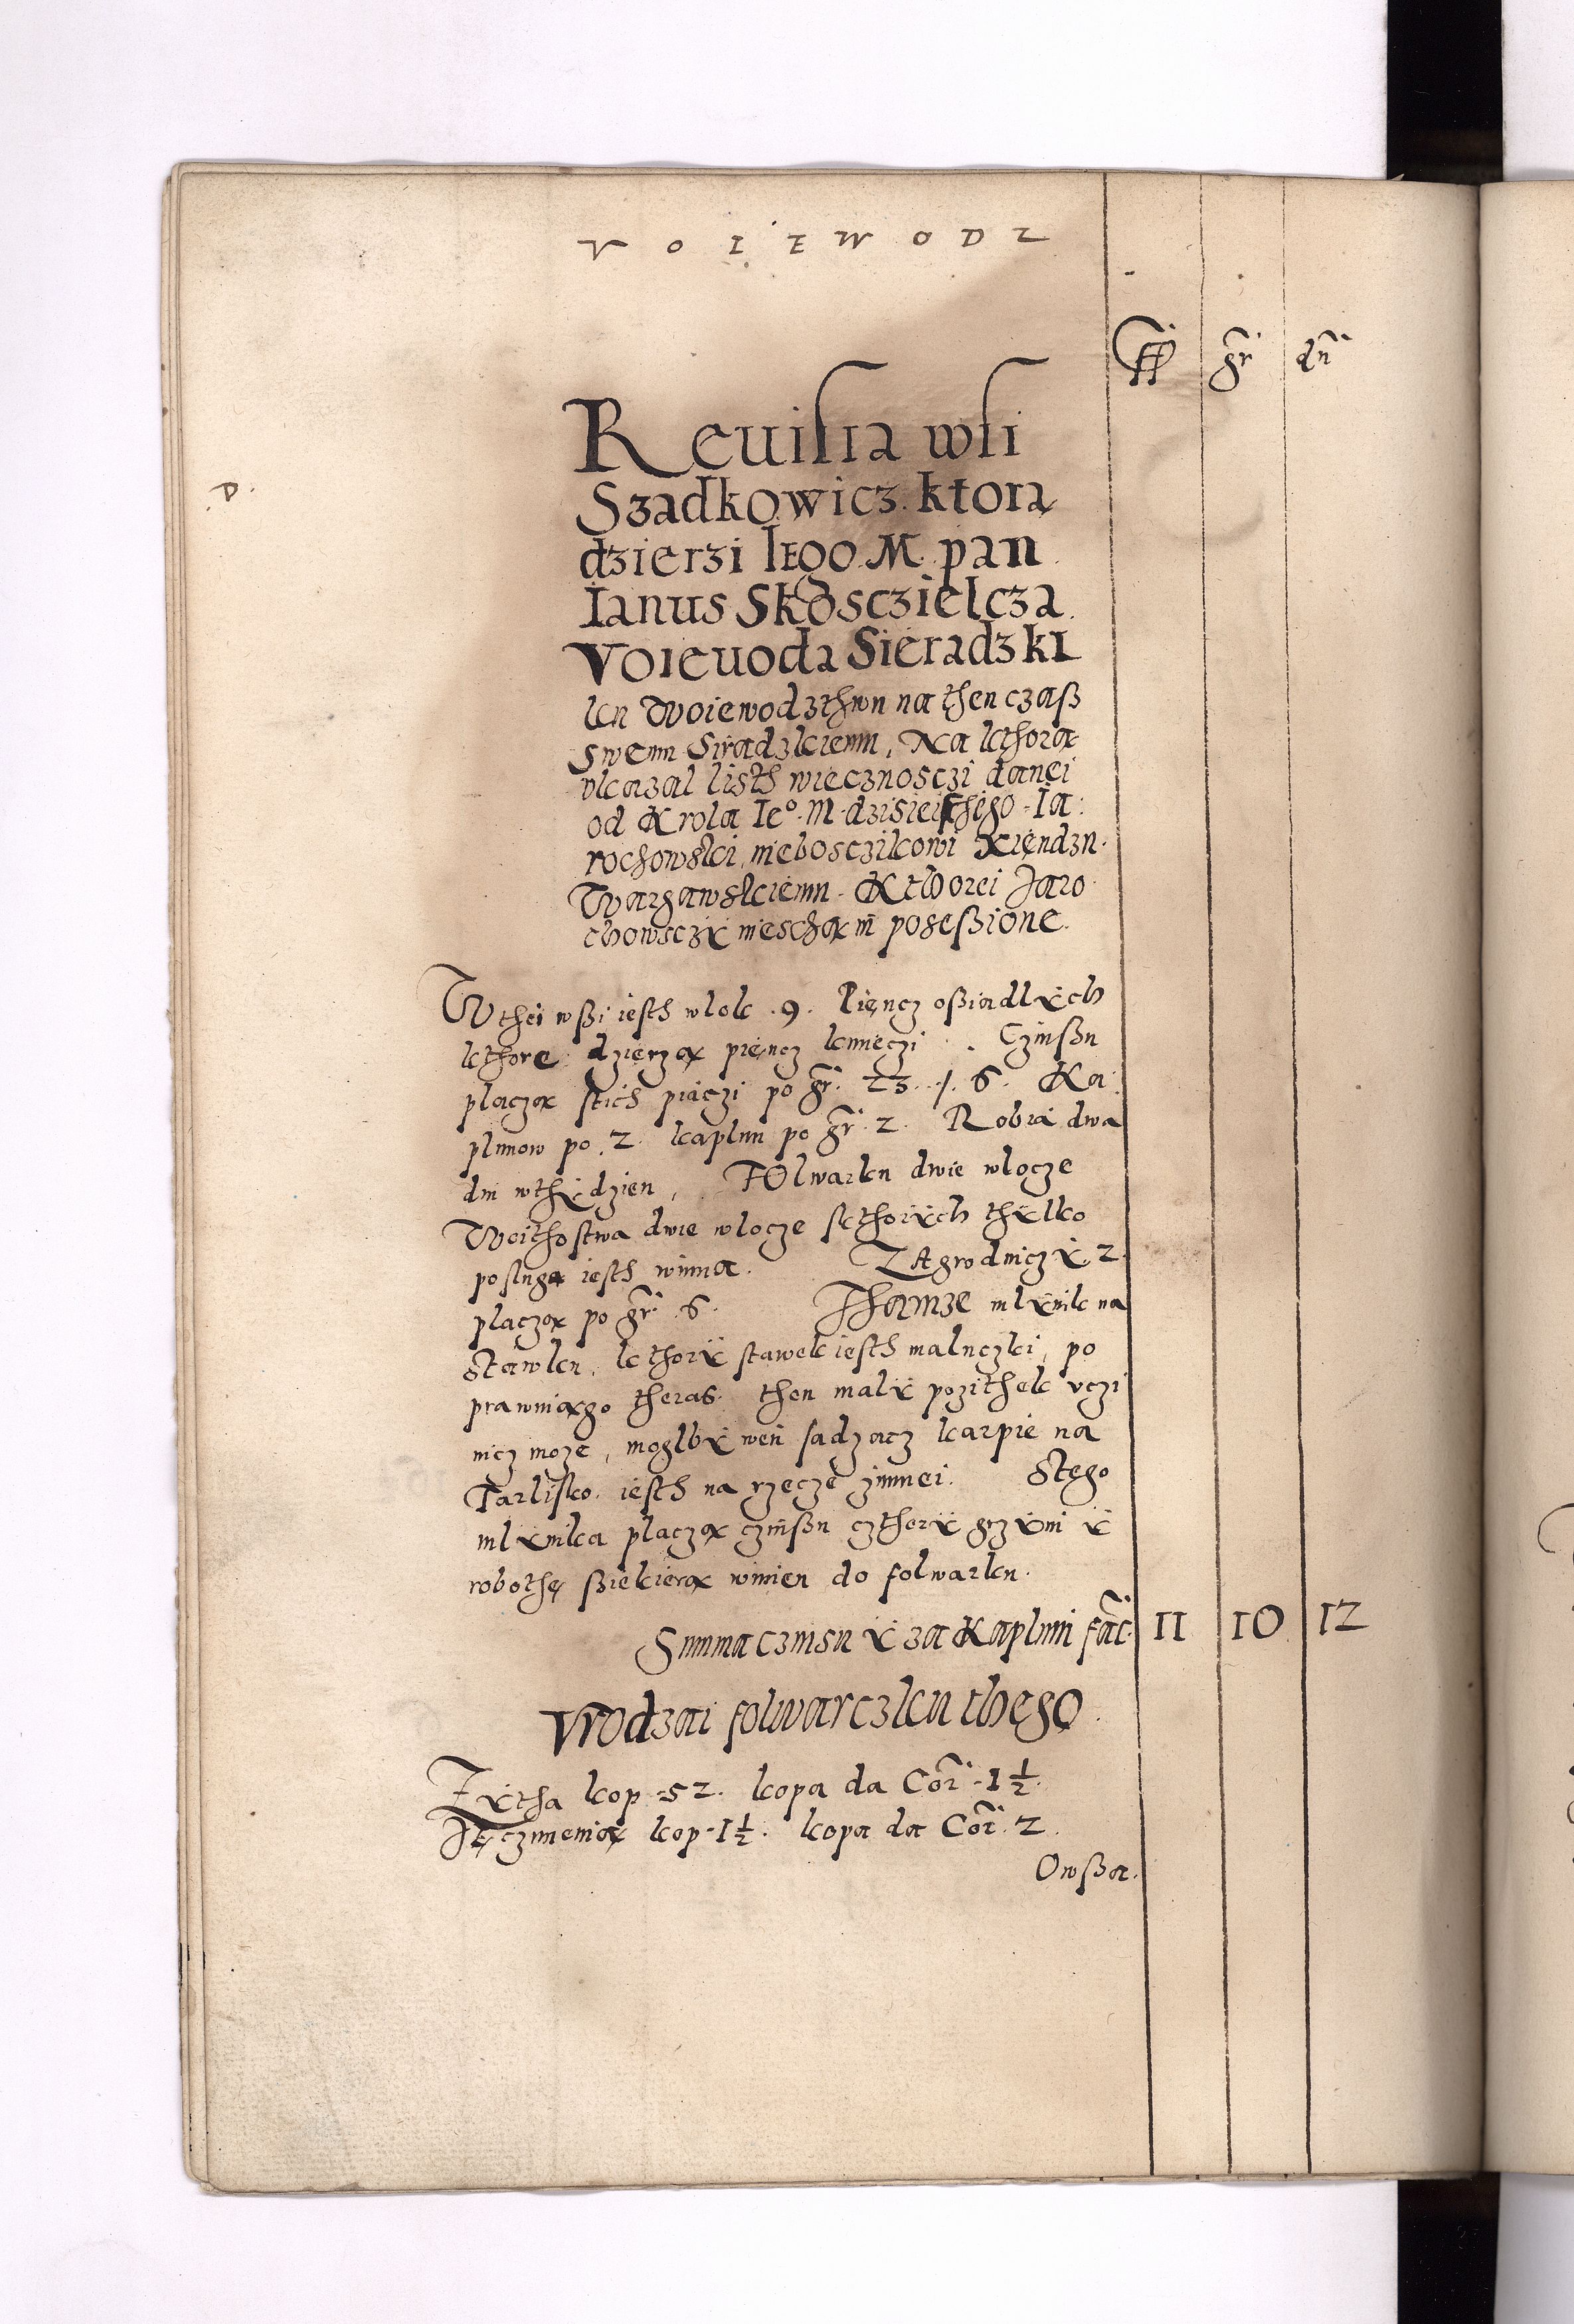 VOIEWODZ
ff gr dn
D.
Reuisia wsi
Szadkowicz. ktorą
dzierzi Iego. M. pan
Ianus Skosczielcza
Voieuoda Sieradzki
ku Woiewodzthwu na then czasz
swemu Siradzkiemu, Na kthorą
vkazal listh wiecznosczi danei
od Krola Ie⁰. M. dzisieischego Ia:
rochowski, nieboszczikowi Xiendzu.
Wargawskiemu. Kthorei Jaro
chowsczÿ nieschą in posessione.
Wthei wsszi iesth wlok .9. Pięncz osziadlÿch
kthore dzierzą pięncz kmieczi. Czinszu
placzą stich piączi po gr. 23. /. 6. Ka:
plunow po .2. kaplun po gr. 2. Robią dwa
dni wthÿdzien, FOlwarku dwie wlocze
Woithostwa dwie wlocze skthorÿch thÿlko
posluga iesth winna. ZAgrodniczÿ. 2.
placzą po gr. 6. Thamze mlÿnik na
Stawku, kthorÿ stawek iesth maluczki, po
prawniągo theras. then malÿ pozithek vczi
nicz moze, moglbÿ weń sadzacz karpie na
Tarlisko. iesth na rzecze zimnei. Stego
mlÿnika placzą czinszu czthorÿ grzÿwni ÿ
robothę sziekierą winien do folwarku.
Summa czinsu ÿ za Kapluni fac. 11 10 12
Vrodzai folwarczku thego.
Zÿtha kop .52. kopa da Cor. 1½.
Jęczmienią kop. 1½. kopa da Cor. 2.
Owsza.